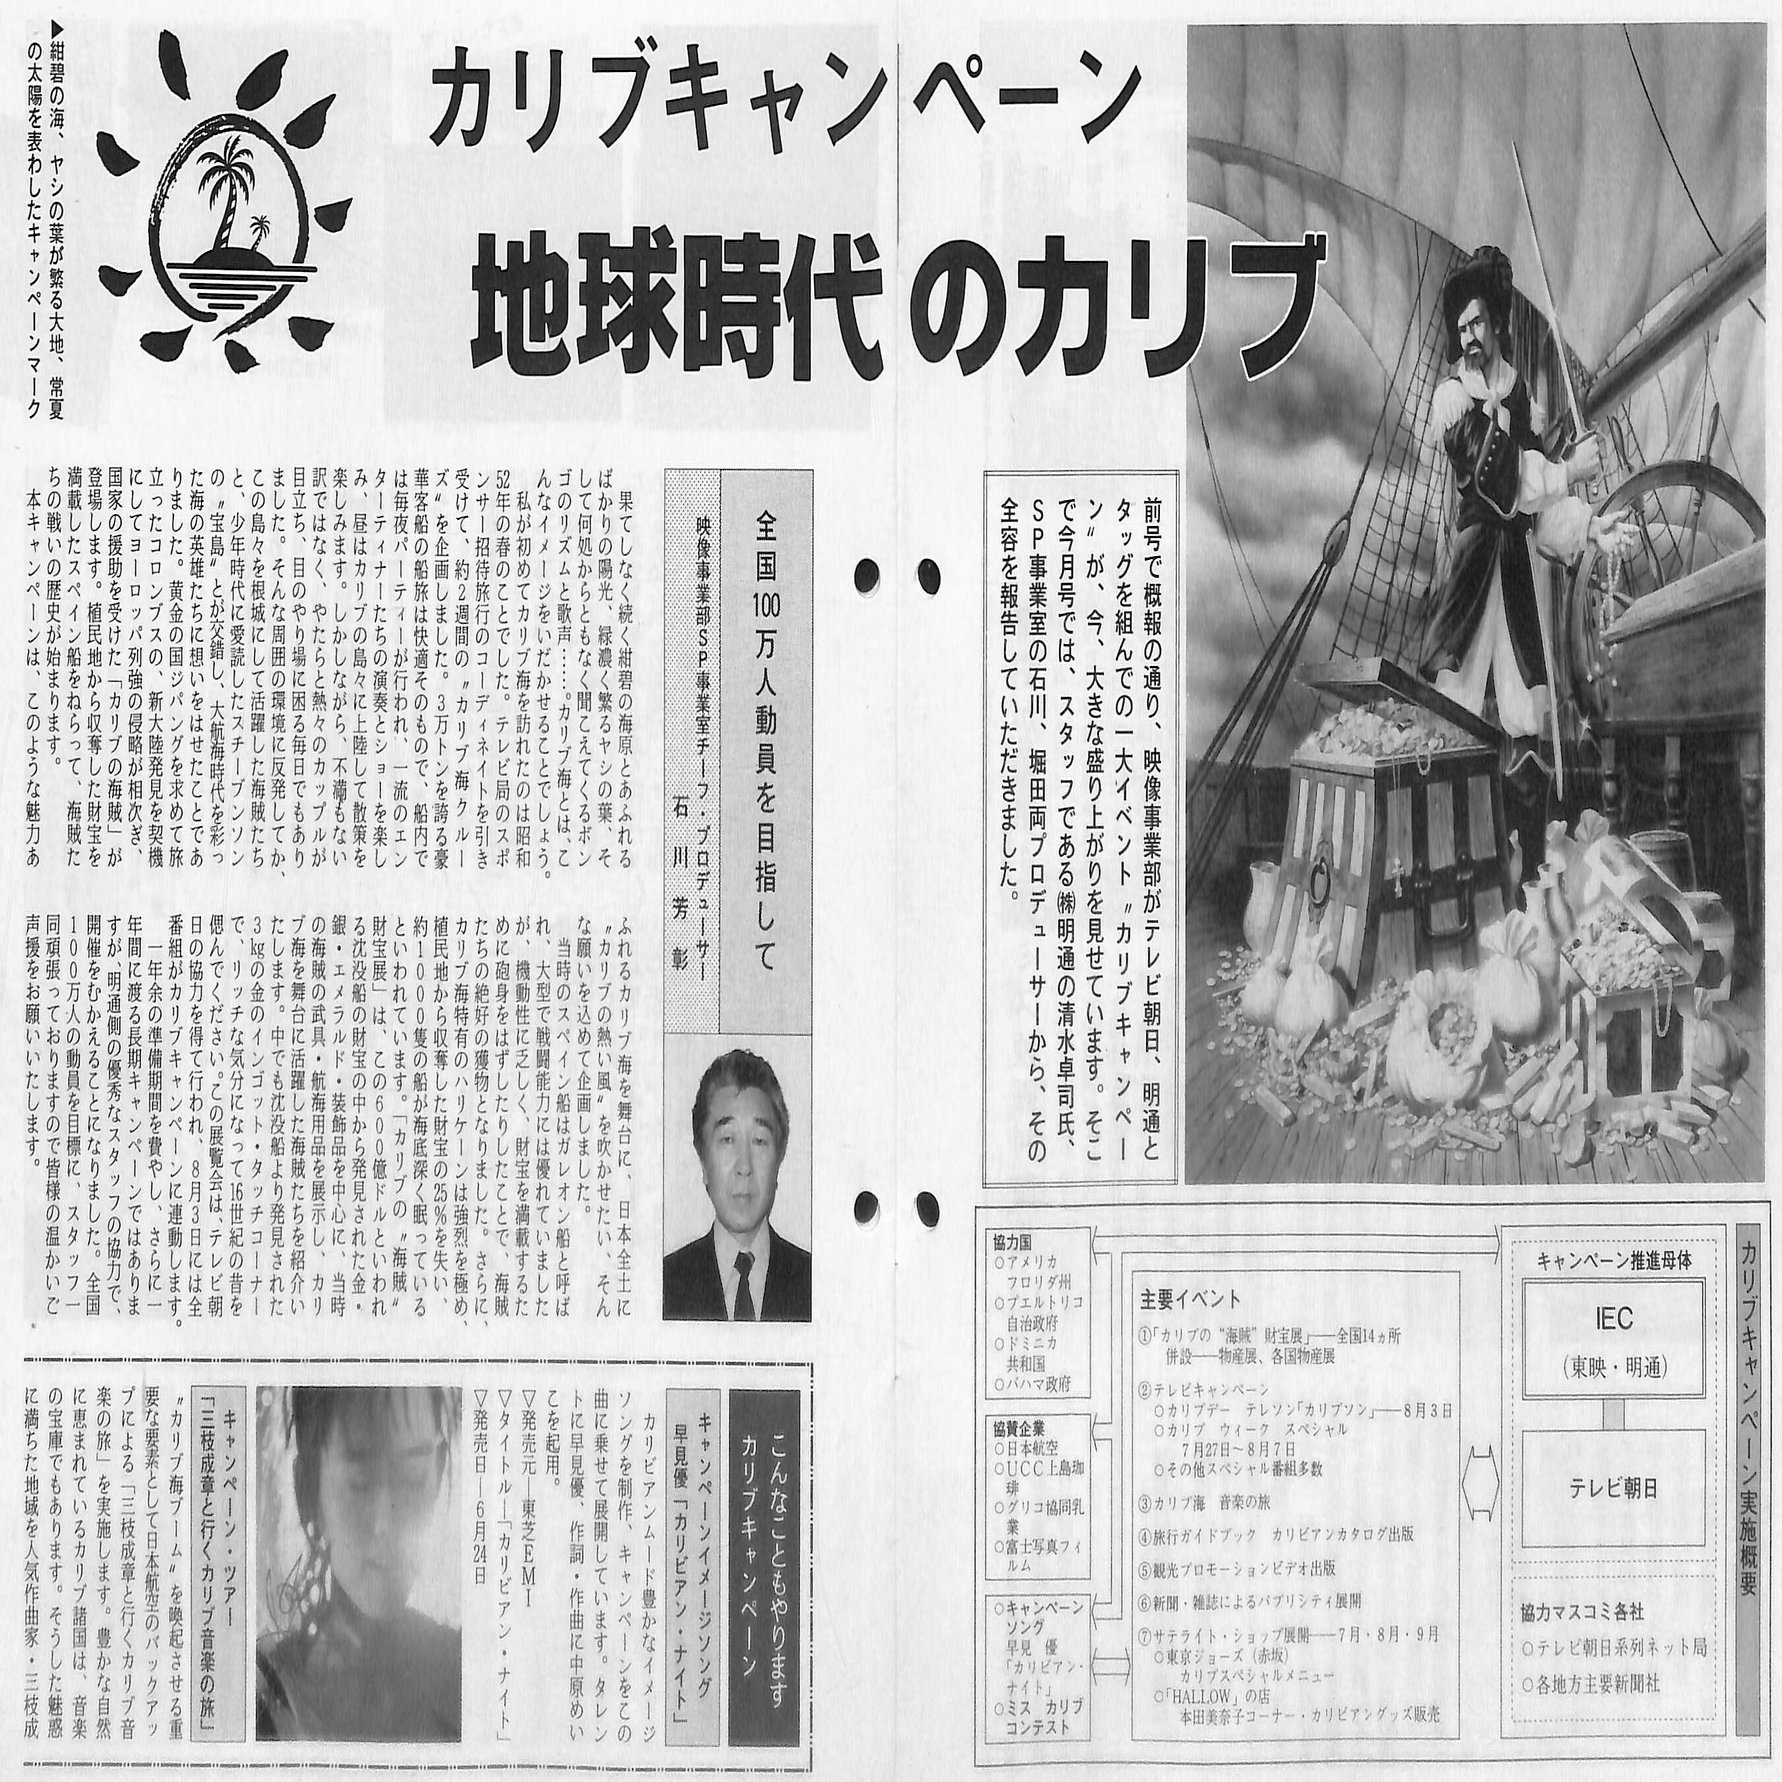 カリブキャンペーン
地球時代のカリブ
▶紺碧の海、ヤシの葉が繁る大地、常夏
の太陽を表わしたキャンペーンマーク
前号で概報の通り、映像事業部がテレビ朝日、明通と
タッグを組んでの一大イベント〝カリブキャンペー
ン〟が、今、大きな盛り上がりを見せています。そこ
で今月号では、スタッフである㈱明通の清水卓司氏、
SP事業室の石川、堀田両プロデューサーから、その
全容を報告していただきました。
全国100万人動員を目指して
映像事業部SP事業室チーフ・プロデューサー
石川芳彰
果てしなく続く紺碧の海原とあふれる
ばかりの陽光、緑濃く繁るヤシの葉、そ
して何処からともなく聞こえてくるボン
ゴのリズムと歌声……。カリブ海とは、こ
んなイメージをいだかせることでしょう。
私が初めてカリブ海を訪れたのは昭和
52年の春のことでした。テレビ局のスポ
ンサー招待旅行のコーディネイトを引き
受けて、約2週間の〝カリブ海クルー
ズ〟を企画しました。3万トンを誇る豪
華客船の船旅は快適そのもので、船内で
は毎夜パーティーが行われ、一流のエン
ターティナーたちの演奏とショーを楽し
み、昼はカリブの島々に上陸して散策を
楽しみます。しかしながら、不満もない
訳ではなく、やたらと熱々のカップルが
目立ち、目のやり場に困る毎日でもあり
ました。そんな周囲の環境に反発してか、
この島々を根城にして活躍した海賊たち
と、少年時代に愛読したスチーブンソン
の〝宝島〟とが交錯し、大航海時代を彩っ
た海の英雄たちに想いをはせたことであ
りました。黄金の国ジパングを求めて旅
立ったコロンブスの、新大陸発見を契機
にしてヨーロッパ列強の侵略が相次ぎ、
国家の援助を受けた「カリブの海賊」が
登場します。植民地から収奪した財宝を
満載したスペイン船をねらって、海賊た
ちの戦いの歴史が始まります。
本キャンペーンは、このような魅力あ
ふれるカリブ海を舞台に、日本全土に
〝カリブの熱い風〟を吹かせたい、そん
な願いを込めて企画しました。
当時のスペイン船はガレオン船と呼ば
れ、大型で戦闘能力には優れていました
が、機動性に乏しく、財宝を満載するた
めに砲身をはずしたりしたことで、海賊
たちの絶好の獲物となりました。さらに、
カリブ海特有のハリケーンは強烈を極め、
植民地から収奪した財宝の25%を失い、
約1000隻の船が海底深く眠っている
といわれています。「カリブの〝海賊〟
財宝展」は、この600億ドルといわれ
る沈没船の財宝の中から発見された金・
銀・エメラルド・装飾品を中心に、当時
の海賊の武具・航海用品を展示し、カリ
ブ海を舞台に活躍した海賊たちを紹介い
たします。中でも沈没船より発見された
3㎏の金のインゴット・タッチコーナー
で、リッチな気分になって16世紀の昔を
偲んでください。この展覧会は、テレビ朝
日の協力を得て行われ、8月3日には全
番組がカリブキャンペーンに連動します。
一年余の準備期間を費やし、さらに一
年間に渡る長期キャンペーンではありま
すが、明通側の優秀なスタッフの協力で、
開催をむかえることになりました。全国
100万人の動員を目標に、スタッフ一
同頑張っておりますので皆様の温かいご
声援をお願いいたします。
こんなこともやります
カリブキャンペーン
キャンペーンイメージソング
早見優「カリビアン・ナイト」
カリビアンムード豊かなイメージ
ソングを制作、キャンペーンをこの
曲に乗せて展開しています。タレン
トに早見優、作詞・作曲に中原めい
こを起用。
▽発売元―東芝EMI
▽タイトル―「カリビアン・ナイト」
▽発売日―6月24日
キャンペーン・ツアー
「三枝成章と行くカリブ音楽の旅」
〝カリブ海ブーム〟を喚起させる重
要な要素として日本航空のバックアッ
プによる「三枝成章と行くカリブ音
楽の旅」を実施します。豊かな自然
に恵まれているカリブ諸国は、音楽
の宝庫でもあります。そうした魅惑
に満ちた地域を人気作曲家・三枝成
カリブキャンペーン実施概要
キャンペーン推進母体
IEC
(東映・明通)
テレビ朝日
協力マスコミ各社
○テレビ朝日系列ネット局
○各地方主要新聞社
主要イベント
①「カリブの〝海賊〟財宝展」――全国14ヵ所
併設――物産展、各国物産展
②テレビキャンペーン
○カリブデー テレソン「カリブソン」――8月3日
○カリブ ウィーク スペシャル
7月27日～8月7日
○その他スペシャル番組多数
③カリブ海 音楽の旅
④旅行ガイドブック カリビアンカタログ出版
⑤観光プロモーションビデオ出版
⑥新聞・雑誌によるパブリシティ展開
⑦サテライト・ショップ展開――7月・8月・9月
○東京ジョーズ(赤坂)
カリブスペシャルメニュー
○「HALLOW」の店
本田美奈子コーナー・カリビアングッズ販売
協力国
○アメリカ
フロリダ州
○プエルトリコ
自治政府
○ドミニカ
共和国
○バハマ政府
協賛企業
○日本航空
○UCC上島珈
琲
○グリコ協同乳
業
○富士写真フィ
ルム
○キャンペーン
ソング
早見 優
「カリビアン・
ナイト」
○ミス カリブ
コンテスト